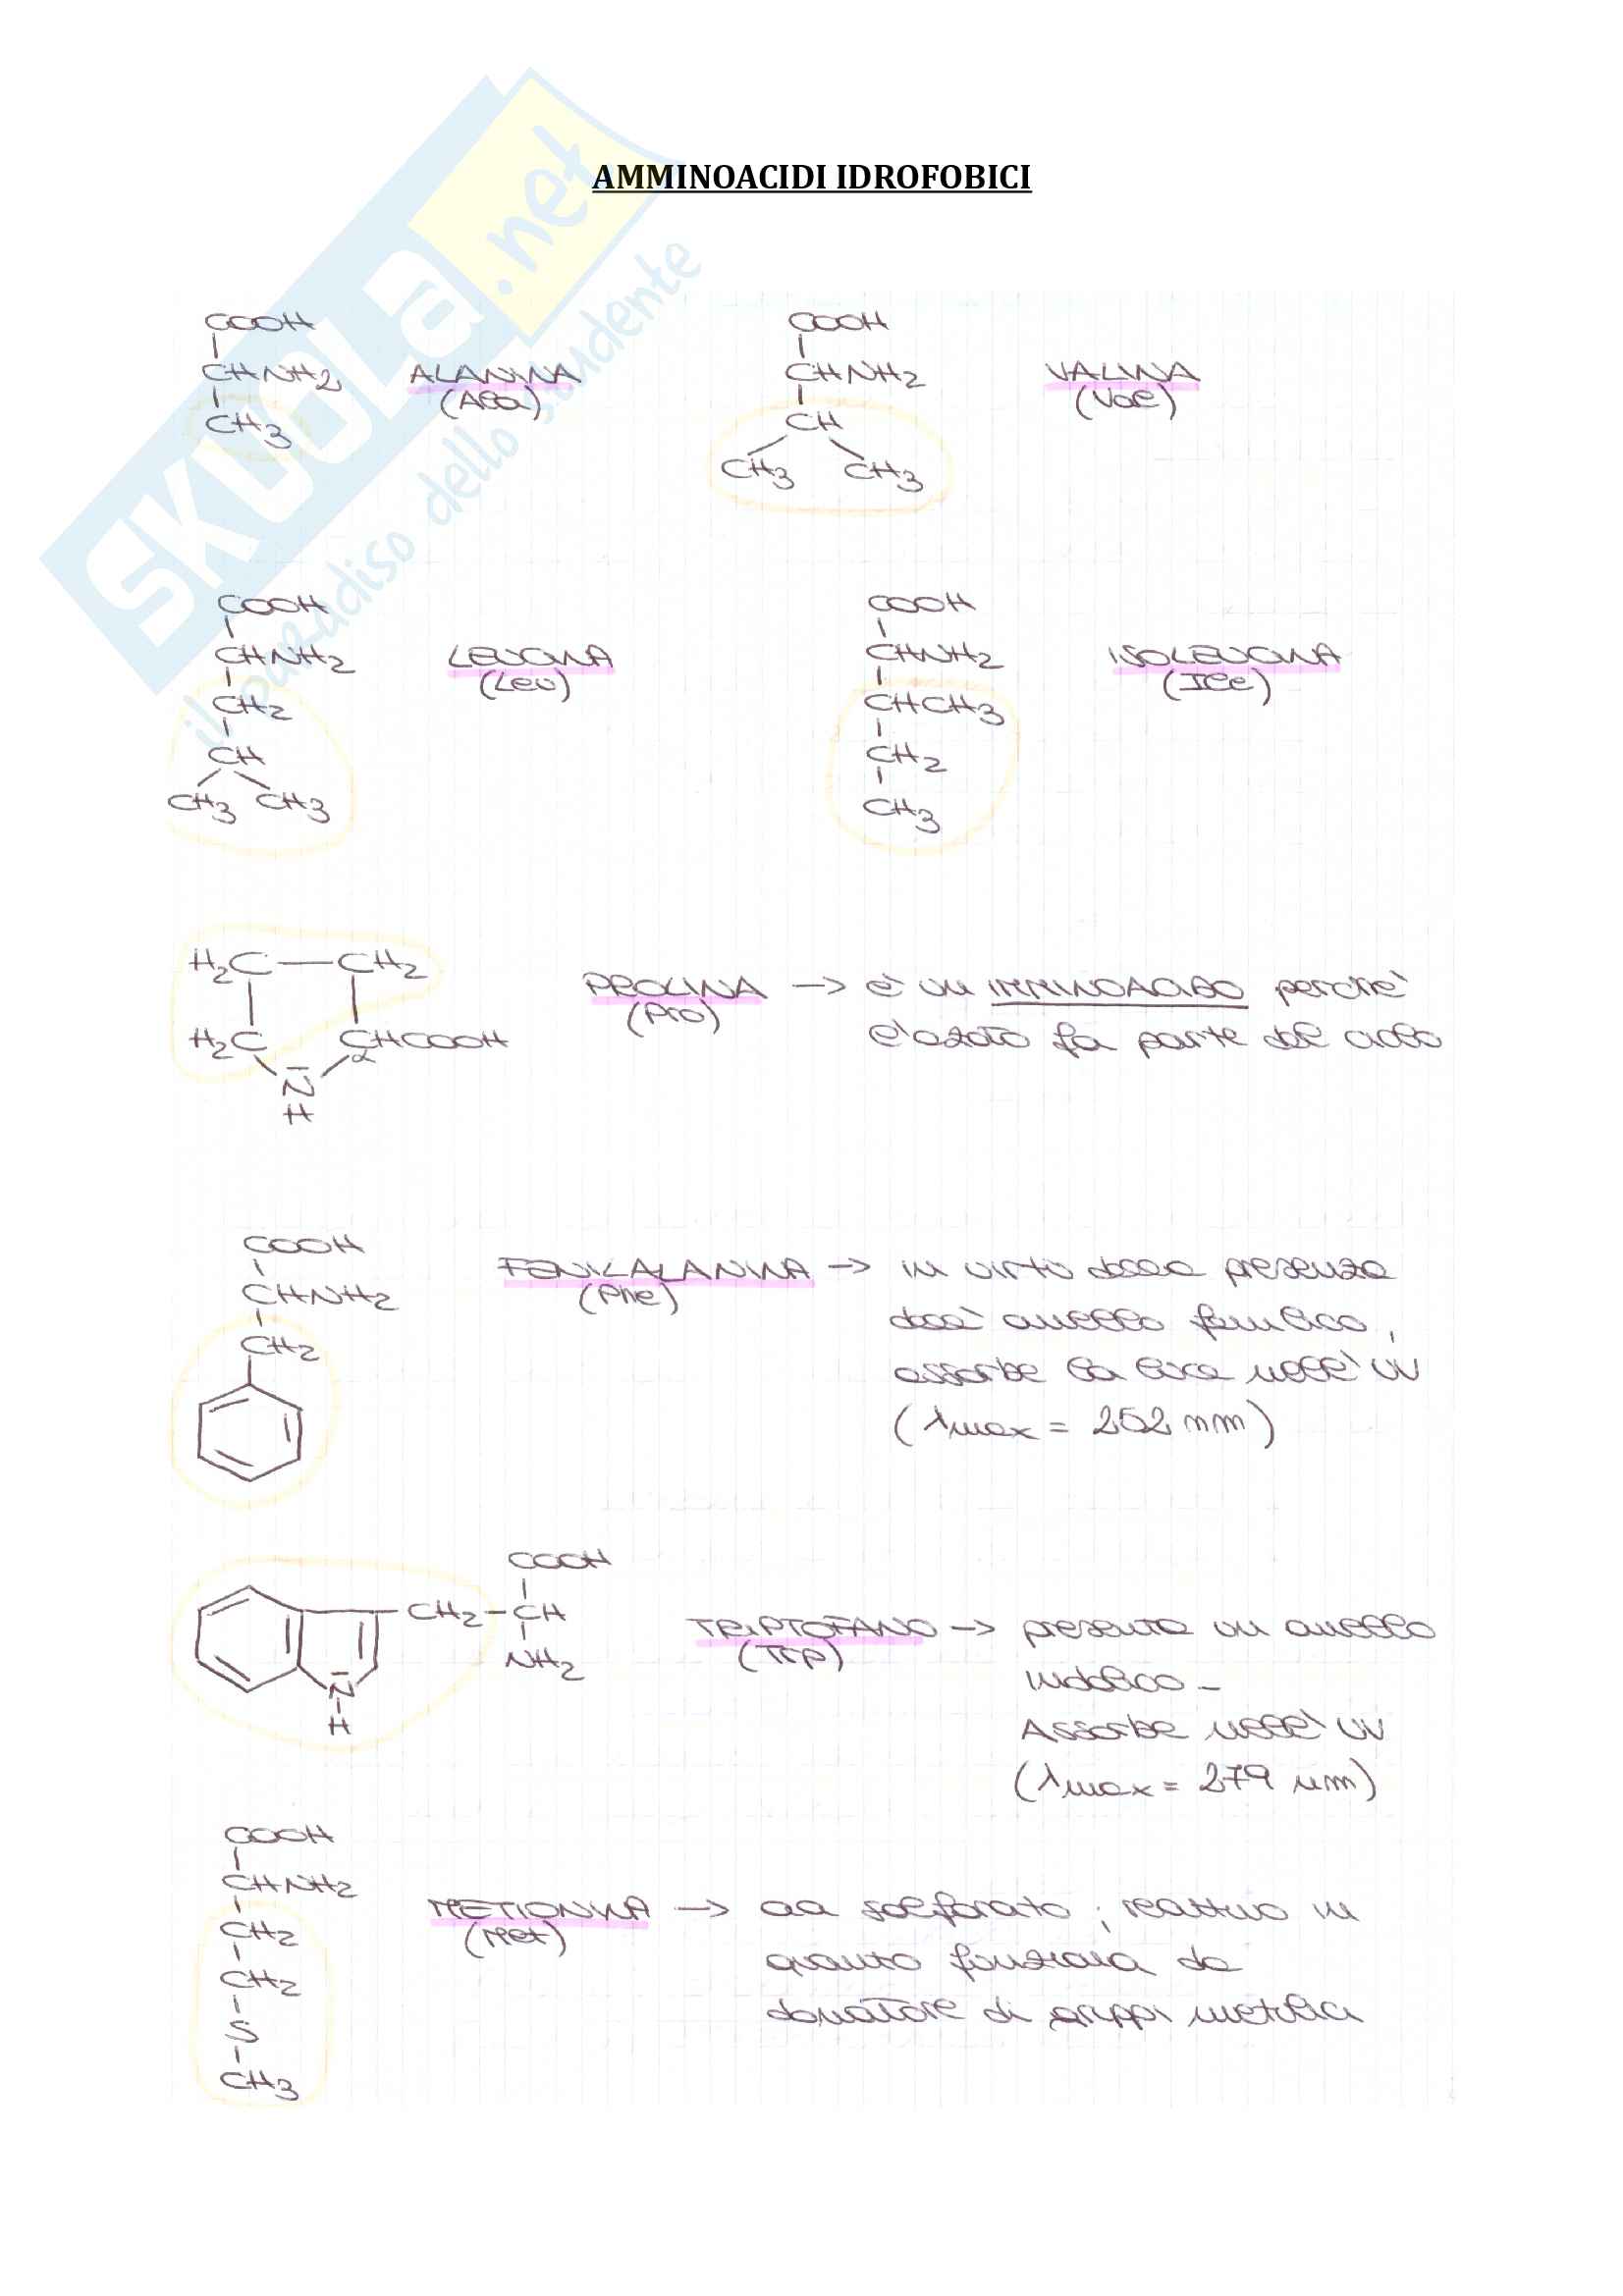 AMMINOACIDI IDROFOBICI
SKUOLA.net
il paradiso dello studente
COOH
CHNH2
CH3
ALANINA
(Ala)
COOH
CHNH2
CH
CH3 CH3
VALINA
(Val)
COOH
CHNH2
CH2
CH
CH3 CH3
LEUCINA
(Leu)
COOH
CHNH2
CHCH3
CH2
CH3
ISOLEUCINA
(Ile)
H2C CH2
H2C CHCOOH
α
N
H
PROLINA → è un IMMINOACIDO perchè
(Pro)
l'azoto fa parte del ciclo
COOH
CHNH2
CH2
FENILALANINA → in virtù della presenza
(Phe)
dell'anello fenilico,
assorbe la luce nell'UV
(λmax = 252 nm)
COOH
CH2-CH
NH2
N
H
TRIPTOFANO → presenta un anello
(Trp)
indolico -
Assorbe nell'UV
(λmax = 279 nm)
COOH
CHNH2
CH2
CH2
S
CH3
METIONINA → aa solforato; reattivo in
(Met)
quanto funziona da
donatore di gruppi metilici